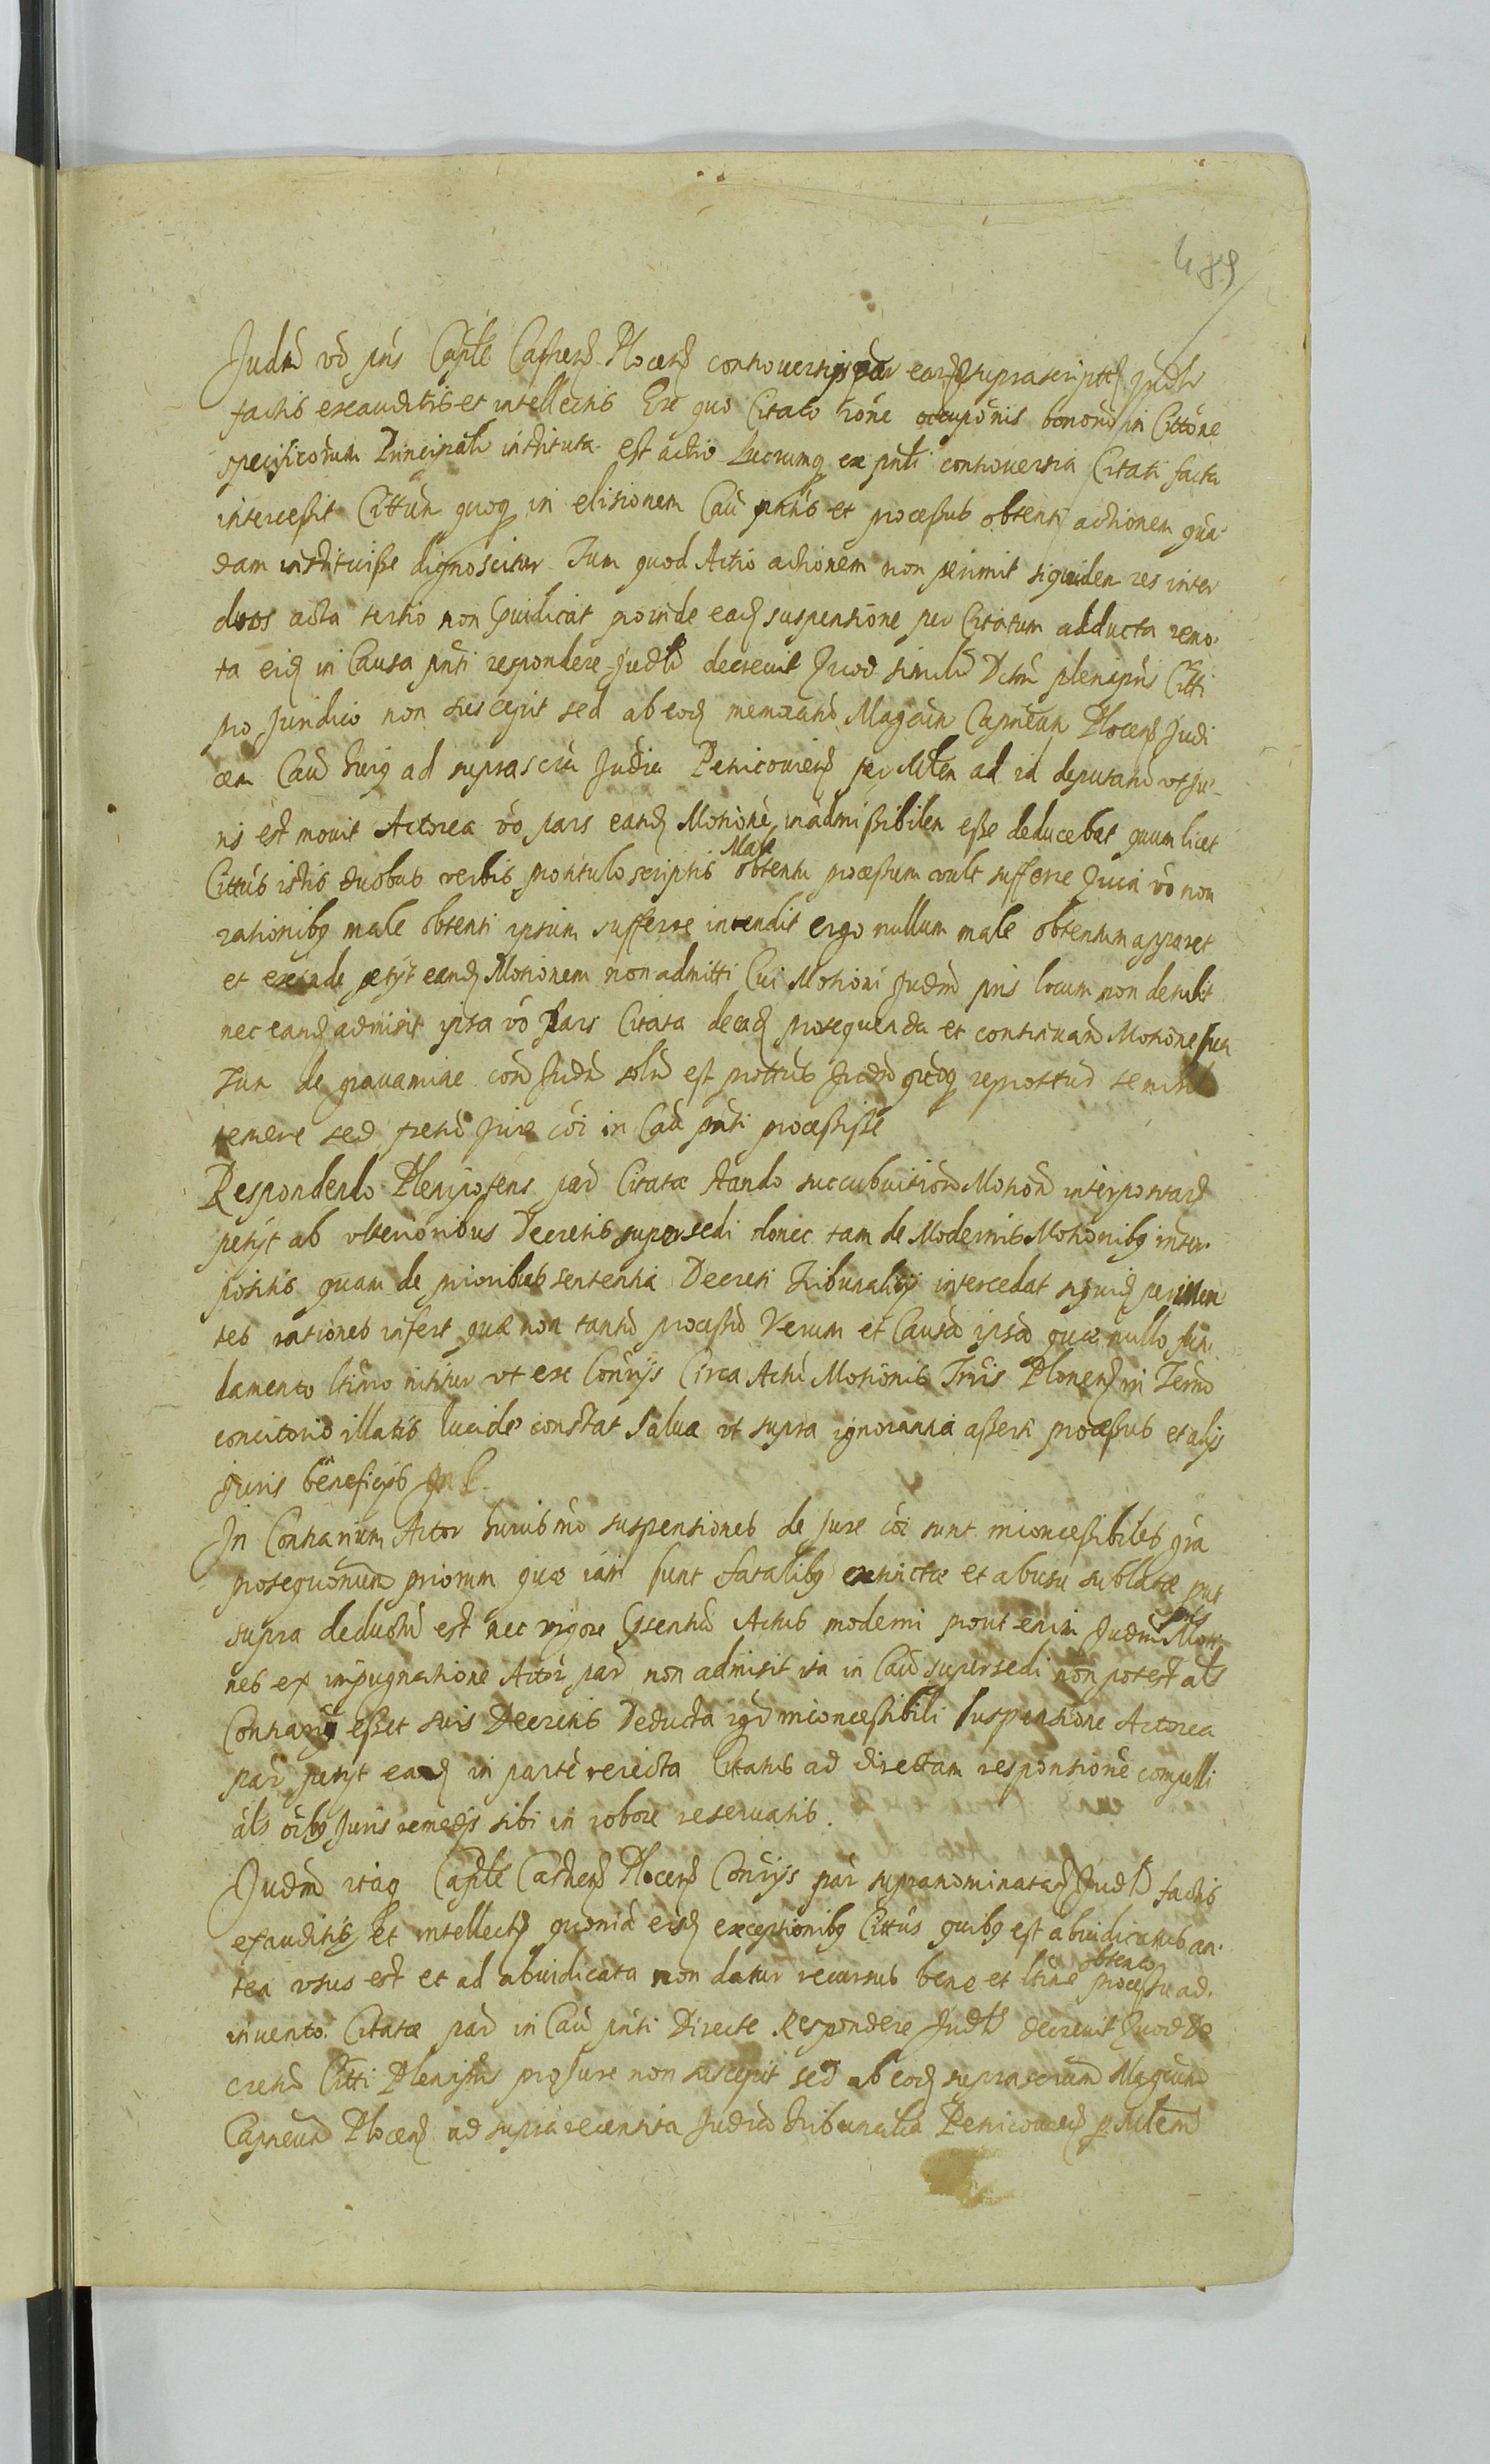 489
Judm vo pns Captle Castren Plocen controversijs par earundem suprascriptis Judlr
factis exauditis et intellectis Ex quo Citato rone occuponis bonorum in Cittone
specificorum Principalr instituta est actio Lucrumq ex pnti controversia Citati facta
intercessit Cittum quoq in elisionem Cau pntis et processus obtenti actionem qua
dam instituisse dignoscitur Tum quod Actio actionem non perimit siquidem res inter
duos acta tertio non pjudicat proinde ead suspensione per Citatum adducta remo
ta eid in Causa pnti respondere Judlr decrevit Quod simile Dctm plenipns Citti
pro Juridico non suscepit sed ab eod memorato Magcum Capneum Plocen Judi
cem Cau huiq ad suprascta Judia Petricovien per Mtem ad id deputand ut ju
ris est movit Actorea vo pars eand Motione inadmissibilem esse deducebat quum licet
Cittus istis duobus verbis protitulo scriptis Male obtentu processum vult sufferre Quia vo non
rationibq male obtenti ipsum sufferre intendit ergo nullum male obtentum apparet
et exinde petyt eand Motionem non admitti Cui Motioni Judm pns locum non detulit
nec eand admisit ipsa vo Pars Citata de ead prosequenda et continuand Motione sua
Tum de gravamine cora Judm solr est prottus Judm quoq reprottud se nihil
temere sed fretu Jure coi in Cau pnti processisse
Respondendo Plenipotens par Citatae stando succubuition Motion interpositar
petyt ab ulterioribus Decretis supersedi donec tam de Modernis Motionibq inter
positis quam de prioribus sententia Decreti Tribunalis intercedat siquid perimen
tes rationes infert quae non tantu processu Verum et Causa ipsa quae nullo fun
damento ltimo nititur ut ex Convrys Circa Actu Motionis Trris Plonen in Termo
concitorio illatis lucide constat Salva ut supra ignorantia asserti processus et alijs
Juris beneficijs
In Contrarium Actor huiusmo suspensiones de jure coi sunt inconcessibiles gra
prosequonum priorum quae iam sunt fatalibq extinctae et abusu sublatae put
supra deductu est nec vigore psentis Actus moderni prout enim Judm pns Motio
nes ex impugnatione Actor par non admisit ita in Cau supersedi non potest als
Contrariu esset suis Decretis Deducta igr inconcessibili suspensione Actorea
pars petyt ead in parte reiecta Citatus ad directam responsione compelli
als oibq Juris remedijs sibi in robore reservatis.
Judm itaq Captle Castren Plocen Convrys par supranominatar Judlr factis
exauditis et intellectis quonia eisd exceptionibq Cittus quibq est abiudicatus an
tea usus est et ad abiudicata non datur recursus bene et ltime obtento processu ad
invento Citatae par in Cau pnti Directe Respondere Judlr decrevit Quod De
cretu Citti Plenipns pro Jure non suscepit sed ab eod suprascrum Magcum
Capneum Plocen ad supra recensita Judia Tribunalia Petricovien p Mtem